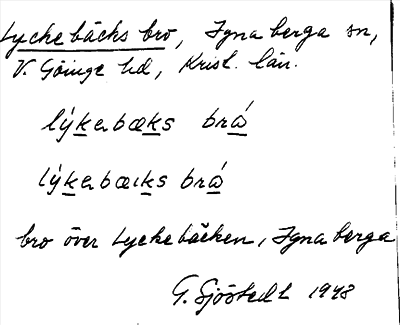 Lyckebäcks bro, Ignaberga sn,
V. Göinge hd, Krist. län.
lýkabæks brǻ
lýkabæıks brǻ
bro över Lyckebäcken, Ignaberga
G. Sjöstedt 1948